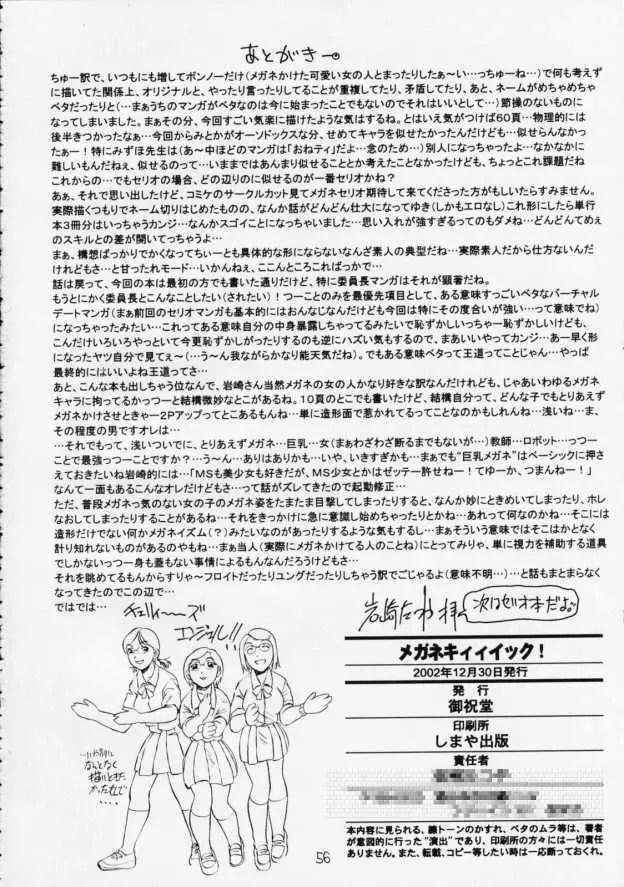 あとがきー。
ちゅー訳で、いつもにも増してボンノーだけ(メガネかけた可愛い女の人とまったりしたぁ〜い…っちゅーね…)で何も考えず
に描いてた関係上、オリジナルと、やったり言ったりしてることが重複してたり、矛盾してたり、あと、ネームがめちゃめちゃ
ベタだったりと(…まぁうちのマンガがベタなのは今に始まったことでもないのでそれはいいとして…)節操のないものに
なってしまいました。まぁその分、今回すごい気楽に描けたような気はするね。とはいえ気がつけば60頁…物理的には
後半きつかったなぁ…今回からみとかがオーソドックスな分、せめてキャラを似せたかったんだけども…似せらんなかっ
たぁー!特にみずほ先生は(あ〜中ほどのマンガは「おねティ」だよ…念のため…)別人になっちゃったよ…なかなかに
難しいもんだねぇ、似せるのって…いままではあんまり似せることとか考えたことなかったけども、ちょっとこれ課題だね
これからの…でもセリオの場合、どの辺りのに似せるのが一番セリオかね?
あぁ、それで思い出したけど、コミケのサークルカット見てメガネセリオ期待して来てくださった方がもしいたらすみません。
実際描くつもりでネーム切りはじめたものの、なんか話がどんどん壮大になってゆき(しかもエロなし)これ形にしたら単行
本3冊分はいっちゃうカンジ…なんかスゴイことになっちゃいました…思い入れが強すぎるってのもダメね…どんどんてめぇ
のスキルとの差が開いてっちゃうよ…
まぁ、構想ばっかりでかくなってちぃーとも具体的な形にならないなんざ素人の典型だね…実際素人だから仕方ないんだ
けれどもさ…と甘ったれモード…いかんねぇ、ここんところこればっかで…
話は戻って、今回の本は最初の方でも書いた通りだけど、特に委員長マンガはそれが顕著だね。
もうとにかく委員長とこんなことしたい(されたい)!つーことのみを最優先項目として、ある意味すっごいベタなバーチャル
デートマンガ(まぁ前回のセリオマンガも基本的にはおんなじなんだけども今回は特にその度合いが強い…って意味でね)
になっちゃったみたい…これってある意味自分の中身暴露しちゃってるみたいで恥ずかしいっちゃー恥ずかしいけども、
こんだけいろいろやっといて今更恥ずかしがったりするのも逆にハズい気もするので、まあいいやってカンジ…あー早く形
になったヤツ自分で見てぇ〜(…う〜ん我ながらかなり能天気だね)。でもある意味ベタって王道ってことじゃん…やっぱ
最終的にはいいよね王道ってさ…
あと、こんな本も出しちゃう位なんで、岩崎さん当然メガネの女の人かなり好きな訳なんだけれども、じゃあいわゆるメガネ
キャラに拘ってるかっつーと結構微妙なとこがあるね。10頁のとこでも書いたけど、結構自分って、どんな子でもとりあえず
メガネかけさせときゃー2Pアップってとこあるもんね…単に造形面で惹かれてるってことなのかもしれんね…浅いね…ま、
その程度の男ですオレは…
…それでもって、浅いついでに、とりあえずメガネ…巨乳…女(まぁわざわざ断るまでもないが…)教師…ロボット…っつー
ことで最強っつーことですか?…う〜ん…ありはありかも…いや、いきすぎかも…まぁでも"巨乳メガネ"はベーシックに押さ
えておきたいね岩崎的には…「MSも美少女も好きだが、MS少女とかはゼッテー許せねー!てゆーか、つまんねー!」
なんて一面もあるこんなオレだけどもさ…って話がズレてきたので起動修正…
ただ、普段メガネっ気のない女の子のメガネ姿をたまたま目撃してしまったりすると、なんか妙にときめいてしまったり、ホレ
なおしてしまったりすることがあるね…それをきっかけに急に意識し始めちゃったりとかね…あれって何なのかね…そこには
造形だけでない何かメガネイズム(?)みたいなのがあったりするような気もするし…まぁそういう意味ではそこはかとなく
計り知れないものがあるのやもね…まぁ当人(実際にメガネかけてる人のことね)にとってみりゃ、単に視力を補助する道具
でしかないっつー身も蓋もない事情によるもんなんだろうけどもさ…
それを眺めてるもんからすりゃ〜フロイトだったりユングだったりしちゃう訳でごじゃるよ(意味不明…)…と話もまとまらなく
なってきたのでこの辺で…
ではでは…
岩崎たつや 拝。
次はゼオ本だよ。
チェリィーーズ
エンジェル!!
なんとなく
描いときた
かったので
・・・・
メガネキィィイック!
2002年12月30日発行
発 行
御祝堂
印刷所
しまや出版
責任者
本内容に見られる、線トーンのかすれ、ベタのムラ等は、著者
が意図的に行った"演出"であり、印刷所の方々には一切責任
ありません。また、転載、コピー等したい時は一応断っておくれ。
56